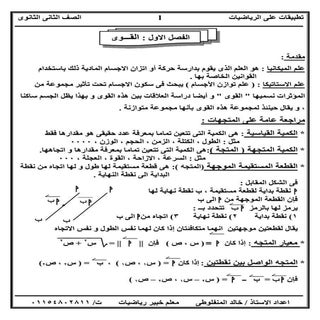 تطبيقات على الرياضيات
1
الصف الثانى الثانوى
الفصل الاول : القــوى
مقدمة :
علم الميكانيا : هو العلم الذى يقوم بدارسة حركة أو اتزان الاجسام المادية ذلك باستخدام
القوانين الخاصة بها .
علم الاستاتيكا : ( علم توازن الاجسام ) يبحث فى سكون الاجسام تحت تأثير مجموعة من
المؤثرات نسميها " القوى " و أيضا دراسة العلاقات بين هذه القوى و بهذا يظل الجسم ساكنا
، و يقال حينئذ لمجموعة هذه القوى بأنها مجموعة متوازنة .
مراجعة عامة على المتجهات :
* الكمية القياسية : هى الكمية التى تتعين تماما بمعرفة عدد حقيقى هو مقدارها فقط
مثل : الطول ، الكتلة ، الزمن ، الحجم ، الوزن ، .....
* الكمية المتجهة ( المتجه ) :هى الكمية التى تتعين تماما بمعرفة مقدارها و اتجاهها.
مثل : السرعة ، الازاحة ، القوة ، العجلة ، ....
* القطعة المستقيمة الموجهة (المتجه ): هى قطعة مستقيمة لها طول و لها اتجاه من نقطة
البداية الى نقطة النهاية .
فى الشكل المقابل :
إذا كان ‏م‏ نقطة بداية لقطعة مستقيمة ، ب نقطة نهاية لها
فإن القطعة الموجهة من ‏م‏ الى ب
يرمز لها بالرمز ‏م‏ب تتحدد بــ :
١) نقطة بداية ٢) نقطة نهاية ٣) اتجاه من ‏م‏ الى ب
يقال لقطعتين موجهتين انهما متكافئتان إذا كان لهما نفس الطول و نفس الاتجاه
* معيار المتجه : إذا كان ‏م‏ = ( س ، ص ) فإن || ‏م‏ || = √س٢ + ص٢
* المتجه الواصل بين نقطتين : إذا كان
اعداد الاستاذ / خالد المنفلوطى
معلم خبير رياضيات
ت/ ٠١١٥٤٥٨٠٢٨١١